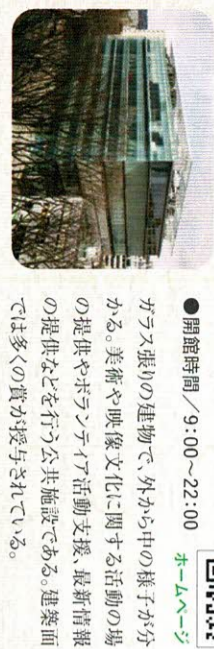 ●開館時間/9:00~22:00
ホームページ
ガラス張りの建物で、外から中の様子が分
かる。美術や映像文化に関する活動の場
の提供やボランティア活動支援、最新情報
の提供などを行う公共施設である。建築面
では多くの賞が授与されている。